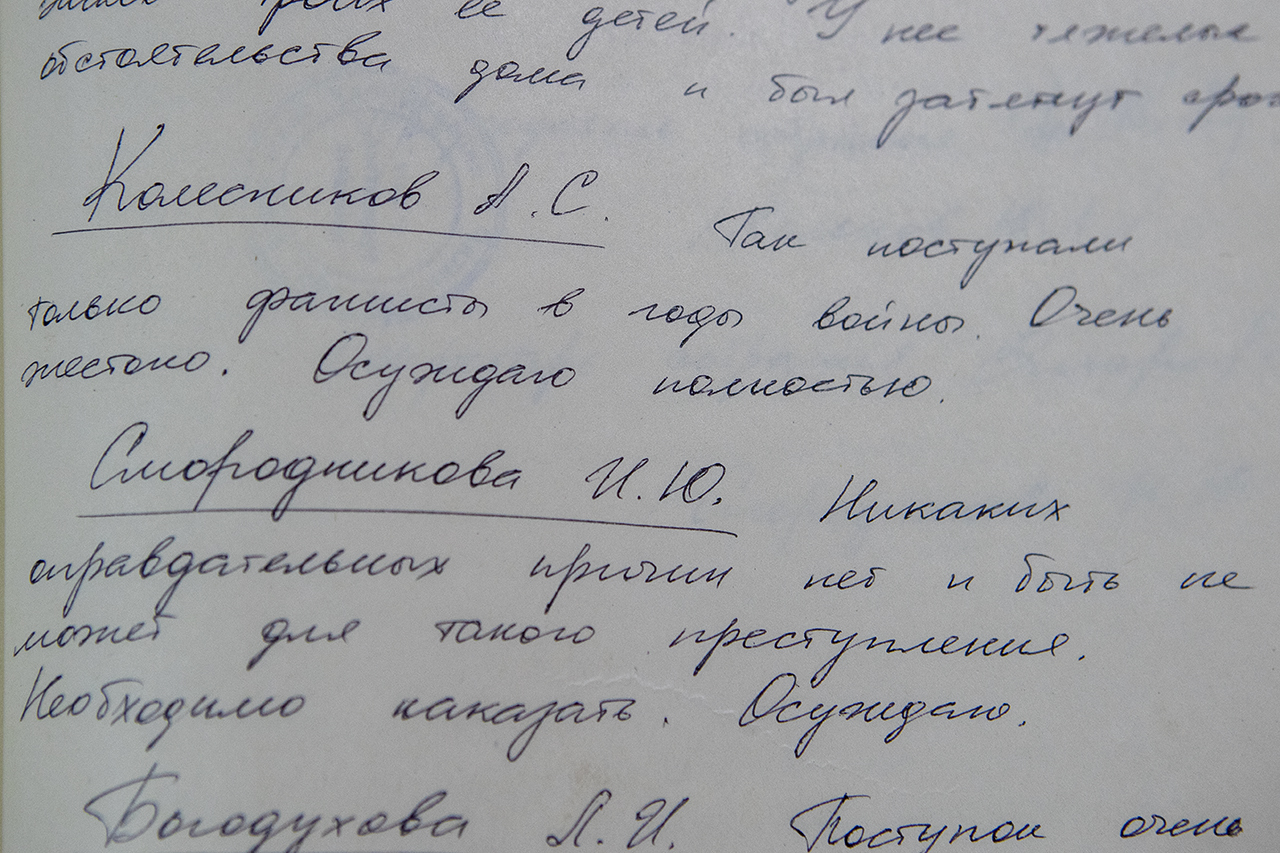 троих ее детей. У нее тяжелые
обстоятельства дома и был затянут
Колесников А.С. Так поступали
только фашисты в годы войны. Очень
жестоко. Осуждаю полностью.
Смородникова И.Ю. Никаких
оправдательных причин нет и быть не
может для такого преступления.
Необходимо наказать. Осуждаю.
Богодухова Л.И. Поступок очень